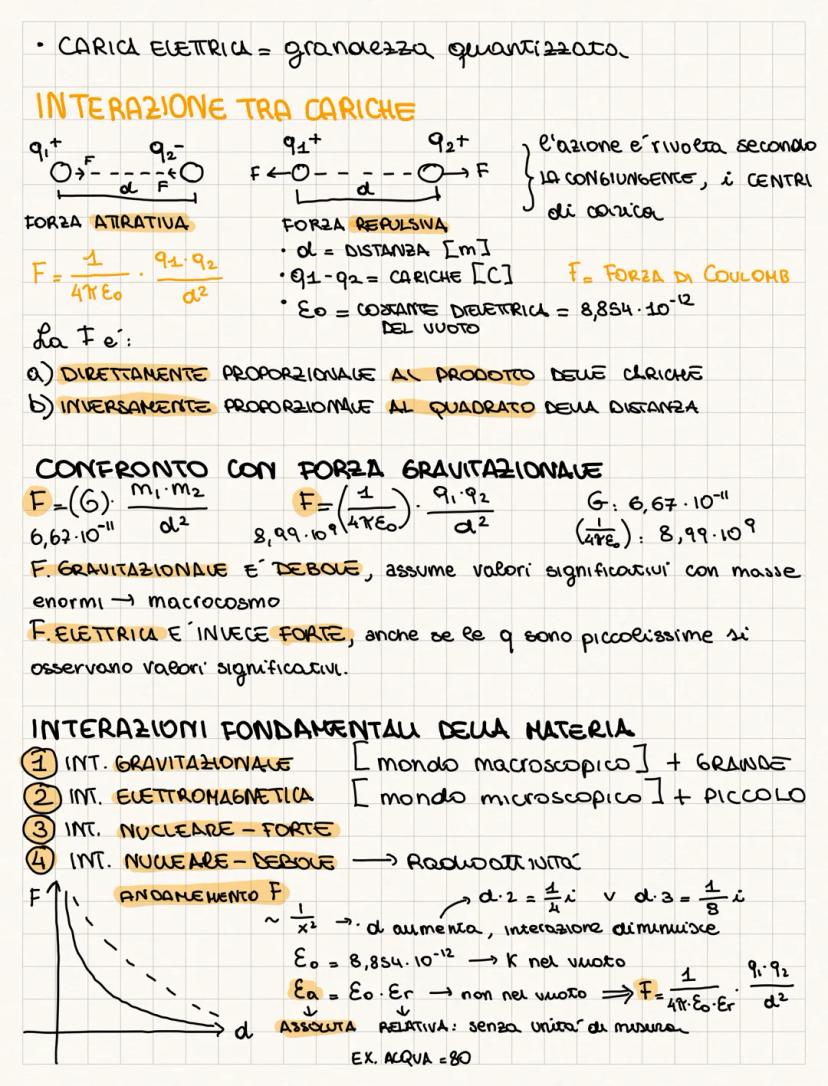 • CARICA ELETTRICA = grandezza quantizzata
INTERAZIONE TRA CARICHE
q1+ q2- q1+ q2+
F F d F d F
l'azione e' rivolta secondo
LA CONGIUNGENTE, i CENTRI
di carica
FORZA ATTRATIVA FORZA REPULSIVA
F = 1/4πε0 · q1·q2/d²
• d = DISTANZA [m]
• q1-q2 = CARICHE [C]
F = FORZA DI COULOMB
• ε0 = COSTANTE DIELETTRICA = 8,854·10⁻¹²
DEL VUOTO
La F e':
a) DIRETTAMENTE PROPORZIONALE AL PRODOTTO DELLE CARICHE
b) INVERSAMENTE PROPORZIONALE AL QUADRATO DELLA DISTANZA
CONFRONTO CON FORZA GRAVITAZIONALE
F = (G) · m1·m2/d² F = (1/4πε0) · q1·q2/d² G: 6,67·10⁻¹¹
6,67·10⁻¹¹ 8,99·10⁹ (1/4πε0): 8,99·10⁹
F. GRAVITAZIONALE E' DEBOLE, assume valori significativi con masse
enormi → macrocosmo
F. ELETTRICA E' INVECE FORTE, anche se le q sono piccolissime si
osservano valori significativi.
INTERAZIONI FONDAMENTALI DELLA MATERIA
1 INT. GRAVITAZIONALE [mondo macroscopico] + GRANDE
2 INT. ELETTROMAGNETICA [mondo microscopico] + PICCOLO
3 INT. NUCLEARE - FORTE
4 INT. NUCLEARE - DEBOLE → Radioattività
F ANDAMEMENTO F
d·2 = 1/4 i v d·3 = 1/8 i
~ 1/x² → d aumenta, interazione diminuisce
ε0 = 8,854·10⁻¹² → K nel vuoto
εa = ε0·εr → non nel vuoto ⇒ F = 1/4π·ε0·εr · q1·q2/d²
d ASSOLUTA RELATIVA: senza unita' di misura
EX. ACQUA = 80